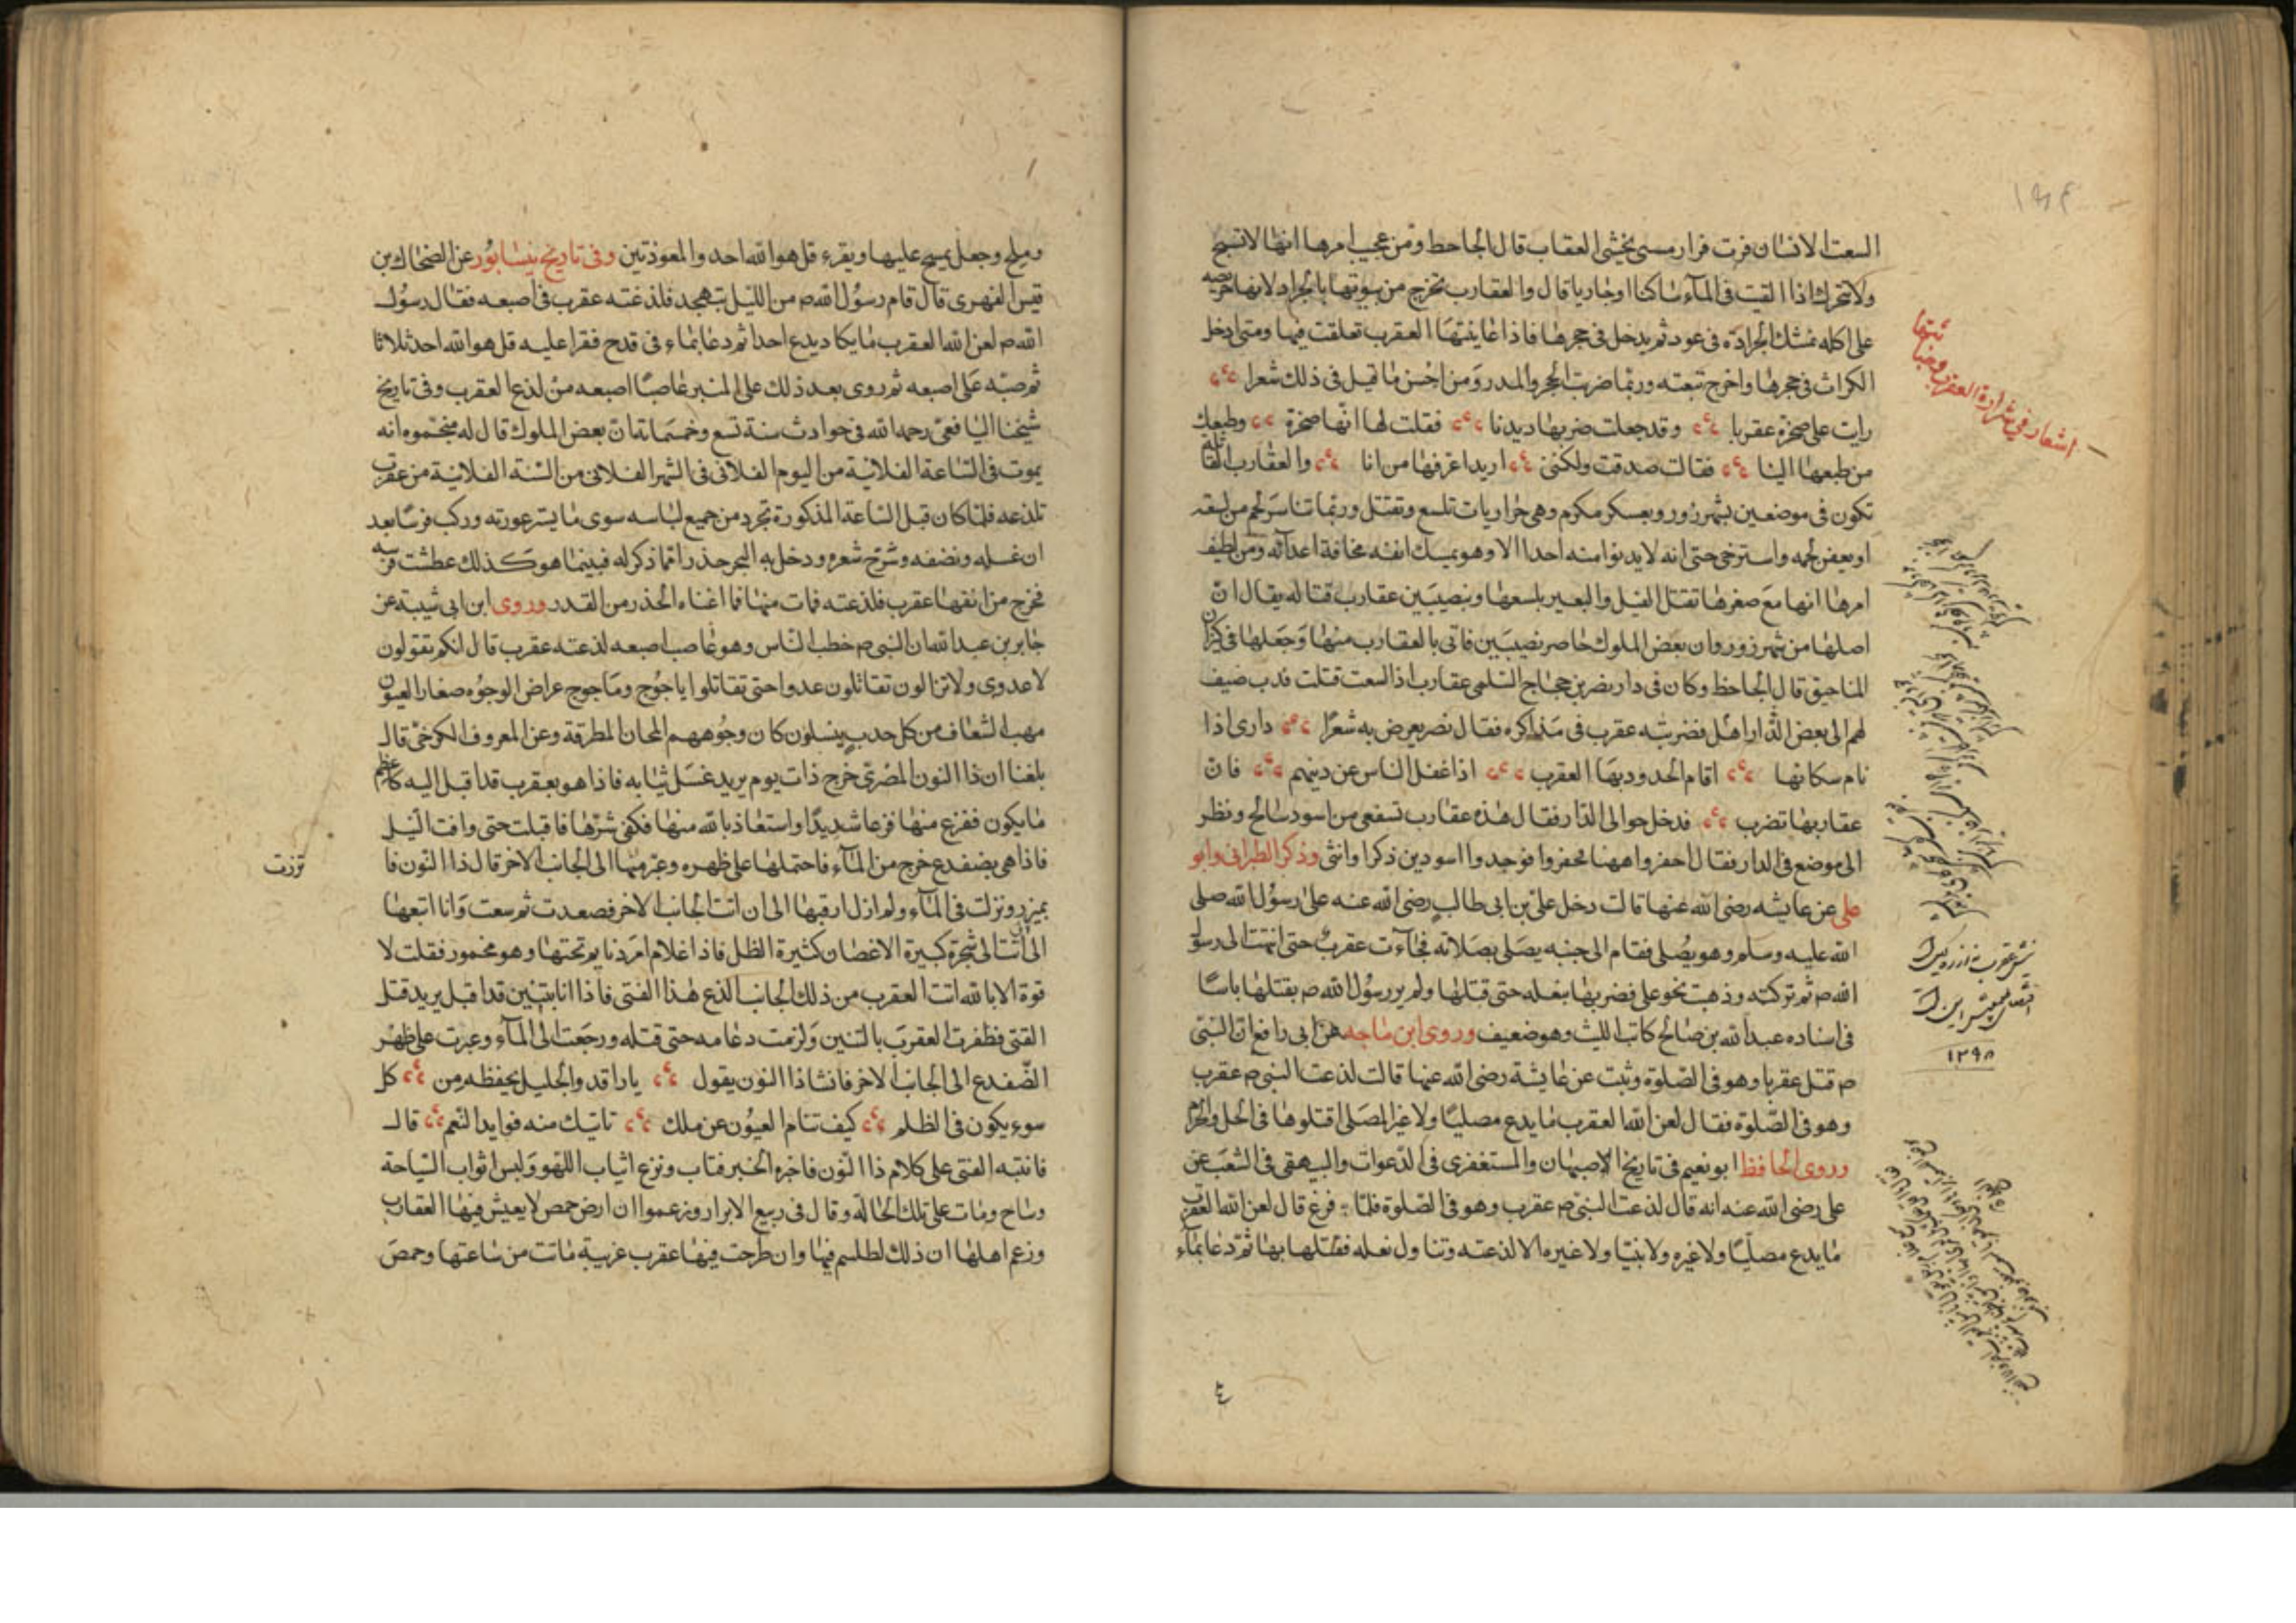 ١٩٤
السعت الانسان فرت فرار مسئ يخشى العقاب قال الجاحط ومن عجيب امرها انها لا تسبح
ولا تتحرك اذا القيت فى المآء ساكنا او جاريا قال والعقارب تخرج من بيوتها بالجراد لانها حريصه
على اكله تمسك الجرادة فى عود ثم يدخل فى حجرها فاذا عاينتها العقرب تعلقت فيها ومتى ادخل
الكراث فى حجرها واخرج تبعته وربما ضربت الحجر والمدر ومن احسن ما قيل فى ذلك شعرا
رايت على صخرة عقربا وقد جعلت ضربها ديدنا فقلت لها انها صخرة وطبعك
من طبعها الينا فقالت صدقت ولكننى اريد اعرفها من انا والعقارب القاتلة
تكون فى موضعين بشهرزور وبعسكر مكرم وهى جرارات تلسع وتقتل وربما تناسر لحم من لسعته
او يعفن لحمه واسترخى حتى انه لا يدنوا منه احدا الا وهو يمسك انفه مخافة اعدائه ومن لطيف
امرها انها مع صغرها تقتل الفيل والبعير بلسعها وبنصيبين عقارب قتاله يقال ان
اصلها من شهرزور وان بعض الملوك حاصر نصيبين فاتى بالعقارب منها وجعلها فى كيزان
المناجيق قال الجاحظ وكان فى دار نصر بن حجاج السلمى عقارب اذا لسعت قتلت فدب ضيف
لهم الى بعض الدار اهل فضربته عقرب فى مذاكره فقال نصر يعرض به شعرًا دارى اذا
نام سكانها اقام الحدود بها العقرب اذا غفل الناس عن دينهم فان
عقاربها تضرب فدخل حوا الى الدار فقال هذه عقارب تسقى من اسود سالح ونظر
الى موضع فى الدار فقال احفروا ههنا فحفروا فوجدوا اسودين ذكرا وانثى وذكر الطبرانى وابو
على عن عايشه رضى الله عنها قالت دخل على بن ابى طالب رضى الله عنه على رسول الله صلى
الله عليه وسلم وهو يصلى فقام الى جنبه يصلى بصلاته فجاءت عقرب حتى انتهت الى رسول
الله م ثم تركته وذهبت نحو على فضربها بنعله حتى قتلها ولم ير رسول الله م بقتلها باسًا
فى اسناده عبد الله بن صالح كاتب الليث وهو ضعيف وروى ابن ماجه عن ابى رافع ان النبى
م قتل عقربا وهو فى الصلوة وثبت عن عايشة رضى الله عنها قالت لذعت النبى م عقرب
وهو فى الصلوة فقال لعن الله العقرب ما يدع مصليًا ولا غير المصلى اقتلوها فى الحل والحرم
وروى الحافظ ابو نعيم فى تاريخ الاصبهان والمستغفرى فى الدعوات والبيهقى فى الشعب عن
على رضى الله عنه انه قال لذعت النبى م عقرب وهو فى الصلوة فلما فرغ قال لعن الله العقرب
ما يدع مصليًا ولا غيره ولا نبيًا ولا غيره الا لذعته وتناول نعله فقتلها بها ثم دعا بمآء
اشعار فى شرارة العقرب
نيش عقرب نه از ره كين است
اقتضاى طبيعتش اين است
١٢٩٨
٤
وملح وجعل يمسح عليها ويقرء قل هو الله احد والمعوذتين وفى تاريخ نيسابور عن الضحاك بن
قيس الفهرى قال قام رسول الله م من الليل يتهجد فلذغته عقرب فى اصبعه فقال رسول
الله م لعن الله العقرب ما يكاد يدع احدا ثم دعا بماء فى قدح فقرا عليه قل هو الله احد ثلاثا
ثم صبه على اصبعه ثم روى بعد ذلك على المنبر عاصبًا اصبعه من لذع العقرب وفى تاريخ
شيخنا اليافعى رحمه الله فى حوادث سنة تسع وخمسمائة ان بعض الملوك قال له منجموه انه
يموت فى الساعة الفلانية من اليوم الفلانى فى الشهر الفلانى من السنة الفلانية من عقرب
تلذعه فلما كان قبل الساعة المذكورة تجرد من جميع لباسه سوى ما يستر عورته وركب فرسًا بعد
ان غسله ونضفه وسرح شعره ودخل به البحر حذرا مما ذكر له فبينما هو كذلك عطست فرسه
فخرج من انفها عقرب فلذعته فمات منها فما اغناه الحذر من القدر وروى ابن ابى شيبة عن
جابر بن عبد الله ان النبى م خطب الناس وهو عاصب اصبعه لذعته عقرب قال انكم تقولون
لا عدوى ولا تزالون تقاتلون عدوا حتى تقاتلوا ياجوج وماجوج عراض الوجوه صغار العيون
صهب الشعاف من كل حدب ينسلون كان وجوههم المجان المطرقة وعن المعروف الكرخى قال
بلغنا ان ذا النون المصرى خرج ذات يوم يريد غسل ثيابه فاذا هو بعقرب قد اقبل اليه كاعظم
ما يكون ففزع منها فزعا شديدًا واستعاذ بالله منها فكفى شرها فاقبلت حتى وافت النيل
فاذا هى بضفدع خرج من المآء فاحتملها على ظهره وعبر بها الى الجانب الاخر قال ذا النون فا
تزرت
بميزر ونزلت فى المآء ولم ازل ارقبها الى ان اتت الجانب الاخر فصعدت ثم سعت وانا اتبعها
الى ان اتت الى شجرة كبيرة الاغصان كثيرة الظل فاذا غلام امرد نايم تحتها وهو مخمور فقلت لا
قوة الا بالله اتت العقرب من ذلك الجانب لذع هذا الفتى فاذا انا بتنين قد اقبل يريد قتل
الفتى فظفرت العقرب بالتنين ولزمت دماغه حتى قتله ورجعت الى المآء وعبرت على ظهر
الضفدع الى الجانب الاخر فانشا ذا النون يقول يا راقد والجليل يحفظه من كل
سوء يكون فى الظلم كيف تنام العيون عن ملك تاتيك منه فوايد النعم قال
فانتبه الفتى على كلام ذا النون فاخبره الخبر فتاب ونزع اثياب اللهو ولبس اثواب السياحة
وساح ومات على تلك الحالة وقال فى ربيع الابرار وزعموا ان ارض حمص لا يعيش فيها العقارب
وزعم اهلها ان ذلك لطلسم فيها وان طرحت فيها عقرب غريبة ماتت من ساعتها وحمص